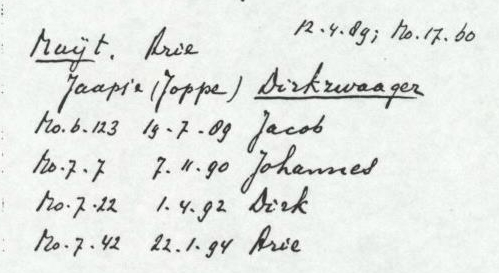 Muÿt. Arie 12.4.89; Mo.17.60
Jaapie (Joppe) Dirkzwaager
Mo.6.123 19.7.89 Jacob
Mo.7.7 7.11.90 Johannes
Mo.7.22 1.4.92 Dirk
Mo.7.42 22.1.94 Arie